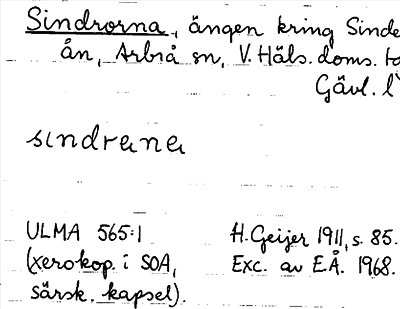 Sindrorna, ängen kring Sinde
ån, Arbrå sn, V. Häls. doms.
Gävl. l
sındrana
ULMA 565:1
(xerokop. i SOA,
särsk. kapsel).
H. Geijer 1911, s. 85.
Exc. av E.Å. 1968.